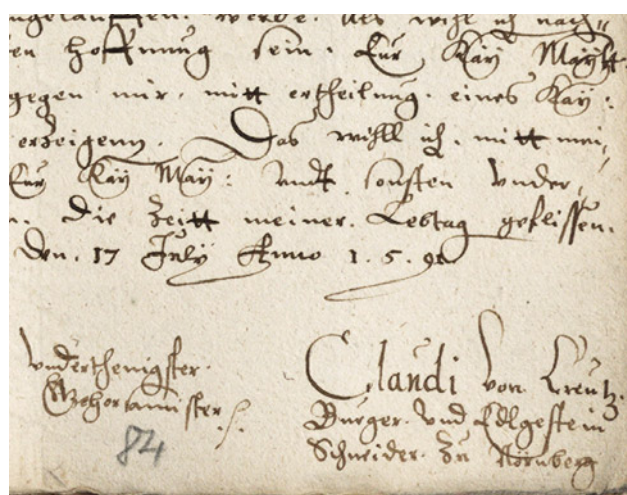 werde. als wihl ich nach=
en hoffnung sein. Eur Kay Maytt.
gegen mir. mitt ertheilung. eines Kay:
erzeigenn. Das wihll ich. mitt mei,
Eur Kay May: undt sonsten under,
n. die Zeitt meiner. Lebtag geflissen.
Den. 17 July Anno 1.5.
underthenigster.
Gehorsamister
Claudi von Creutz.
Burger. und Edlgestein
Schneider. zu Nörnberg
84